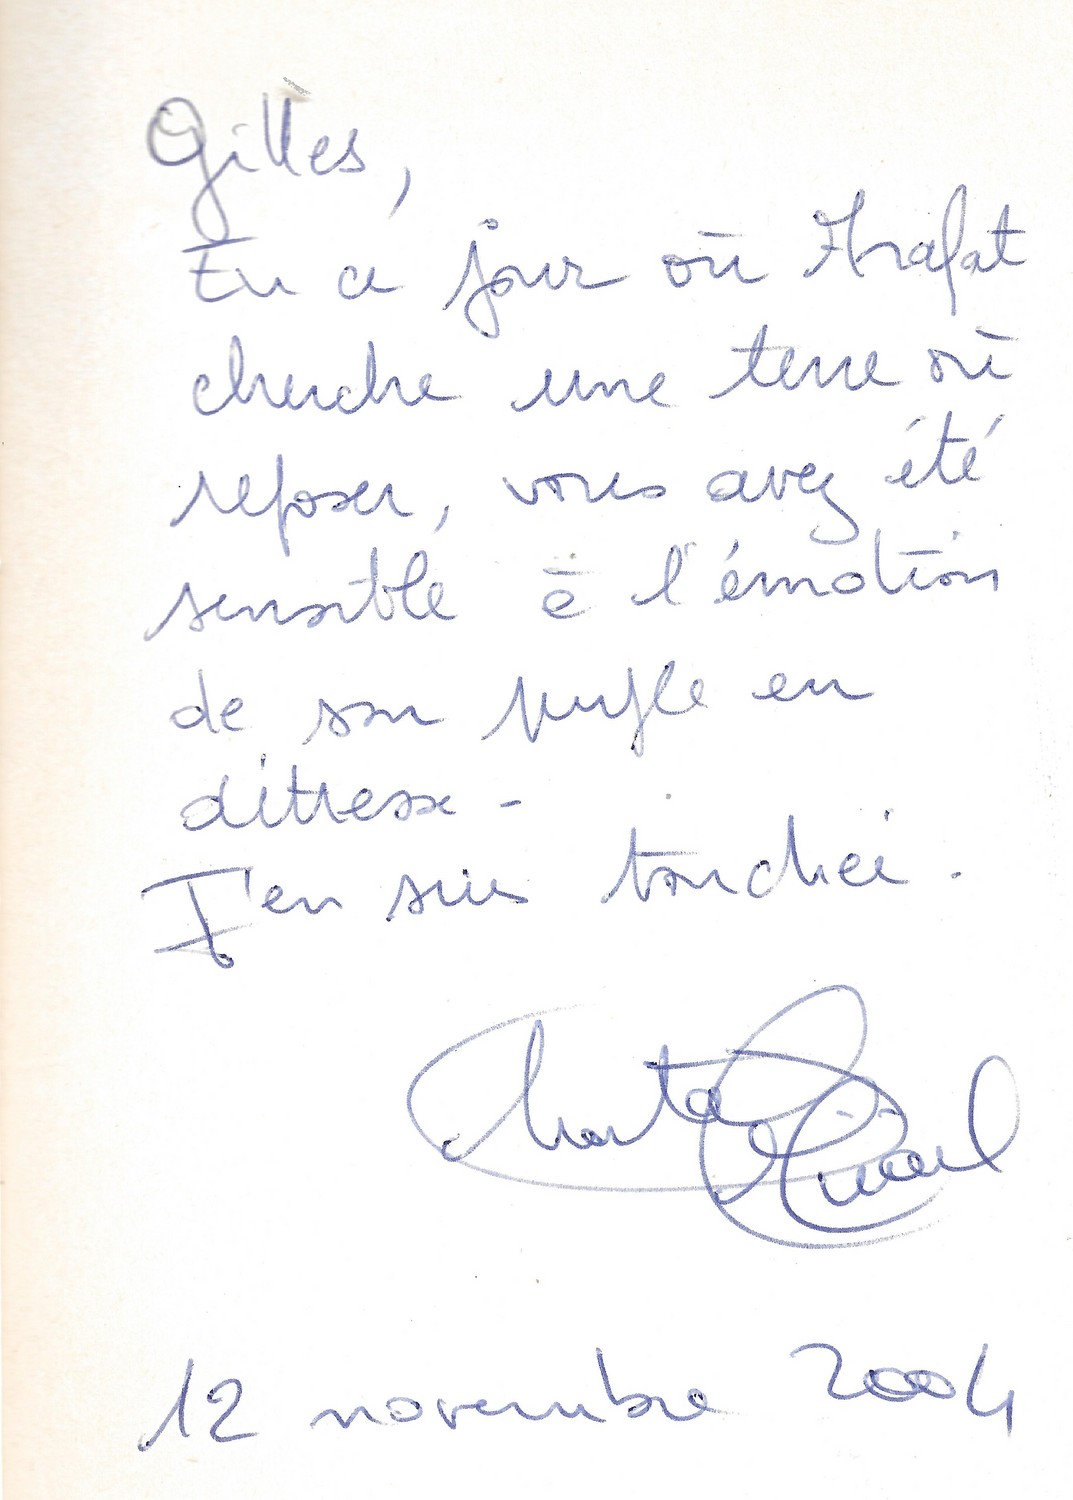 Gilles,
En ce jour où Arafat
cherche une terre où
reposer, vous avez été
sensible à l'émotion
de son peuple en
détresse -
J'en suis touchée.
Chantal
12 novembre 2004